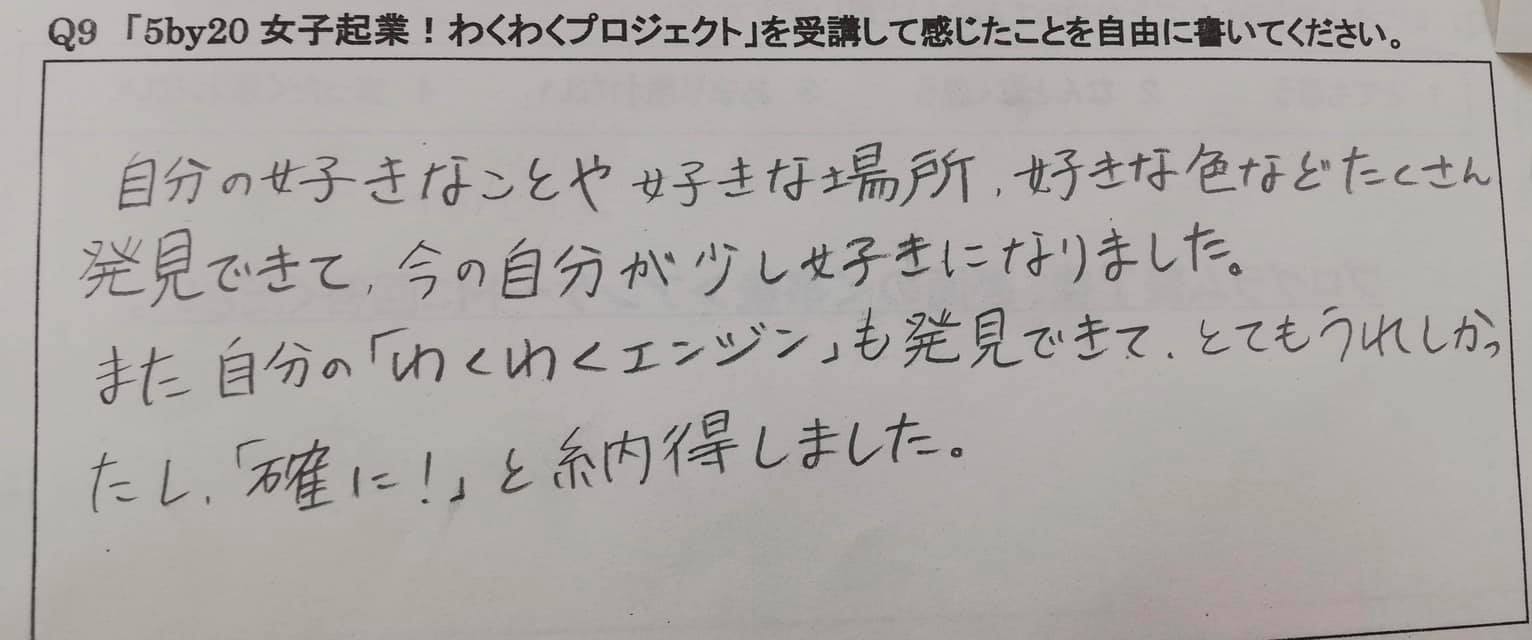 Q9 「5by20 女子起業！わくわくプロジェクト」を受講して感じたことを自由に書いてください。
自分の好きなことや好きな場所、好きな色などたくさん
発見できて、今の自分が少し好きになりました。
また自分の「わくわくエンジン」も発見できて、とてもうれしかっ
たし、「確に！」と納得しました。